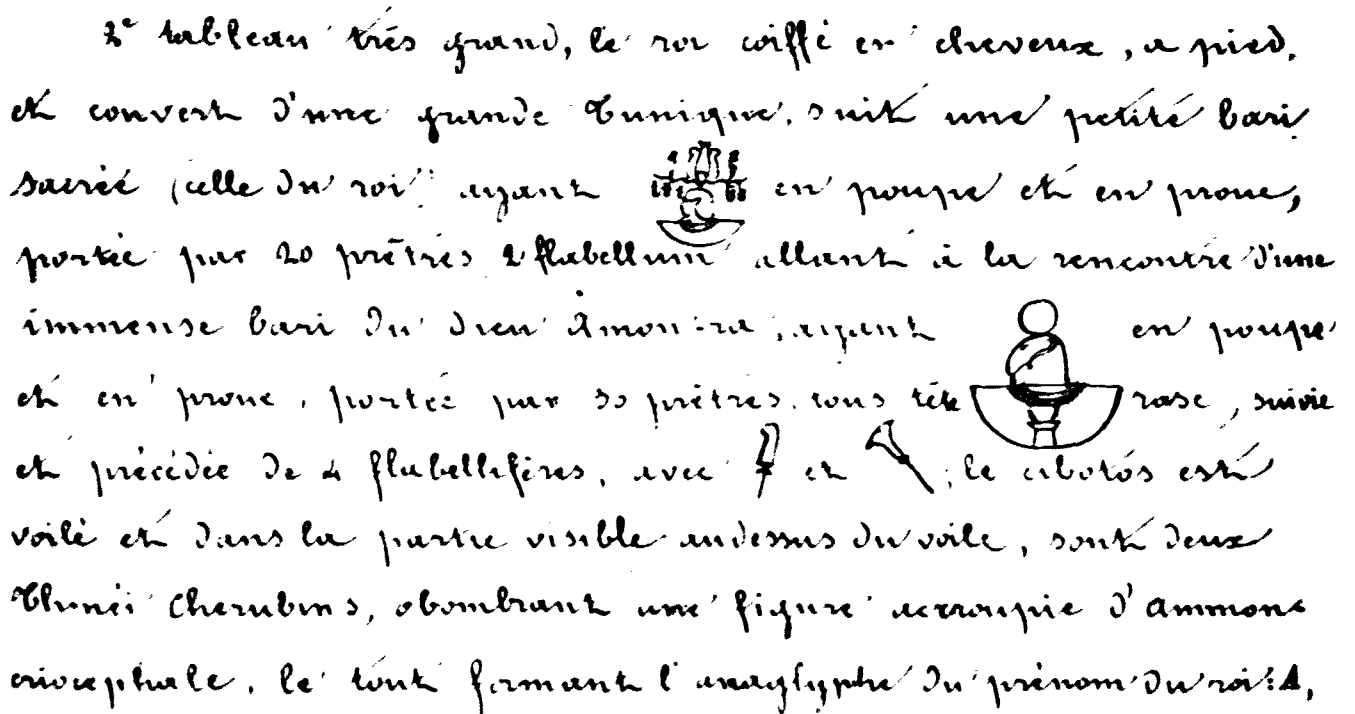 2e tableau très grand, le roi coiffé en cheveux, a pied,
et couvert d'une grande Tunique, suit une petite bari
sacrée (celle du roi) ayant en poupe et en proue,
portée par 20 prêtres 2 flabellum allant à la rencontre d'une
immense bari du dieu Amon-ra, ayant en poupe
et en proue, portée par 30 prêtres, tous tête rase, suivie
et précédée de 4 flabellifères, avec et ; le cibotos est
voilé et dans la partie visible audessus du voile, sont deux
Thméi Cherubins, obombrant une figure accroupie d'Ammon
criocephale, le tout formant l'anaglyphe du prénom du roi: A,